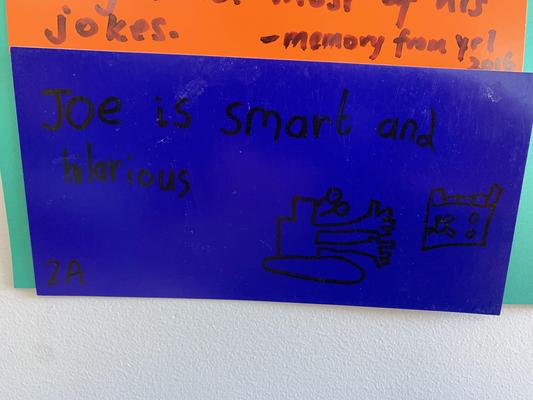 most of his
jokes.
-memory from yr1
2016
Joe is smart and
hilarious
2A